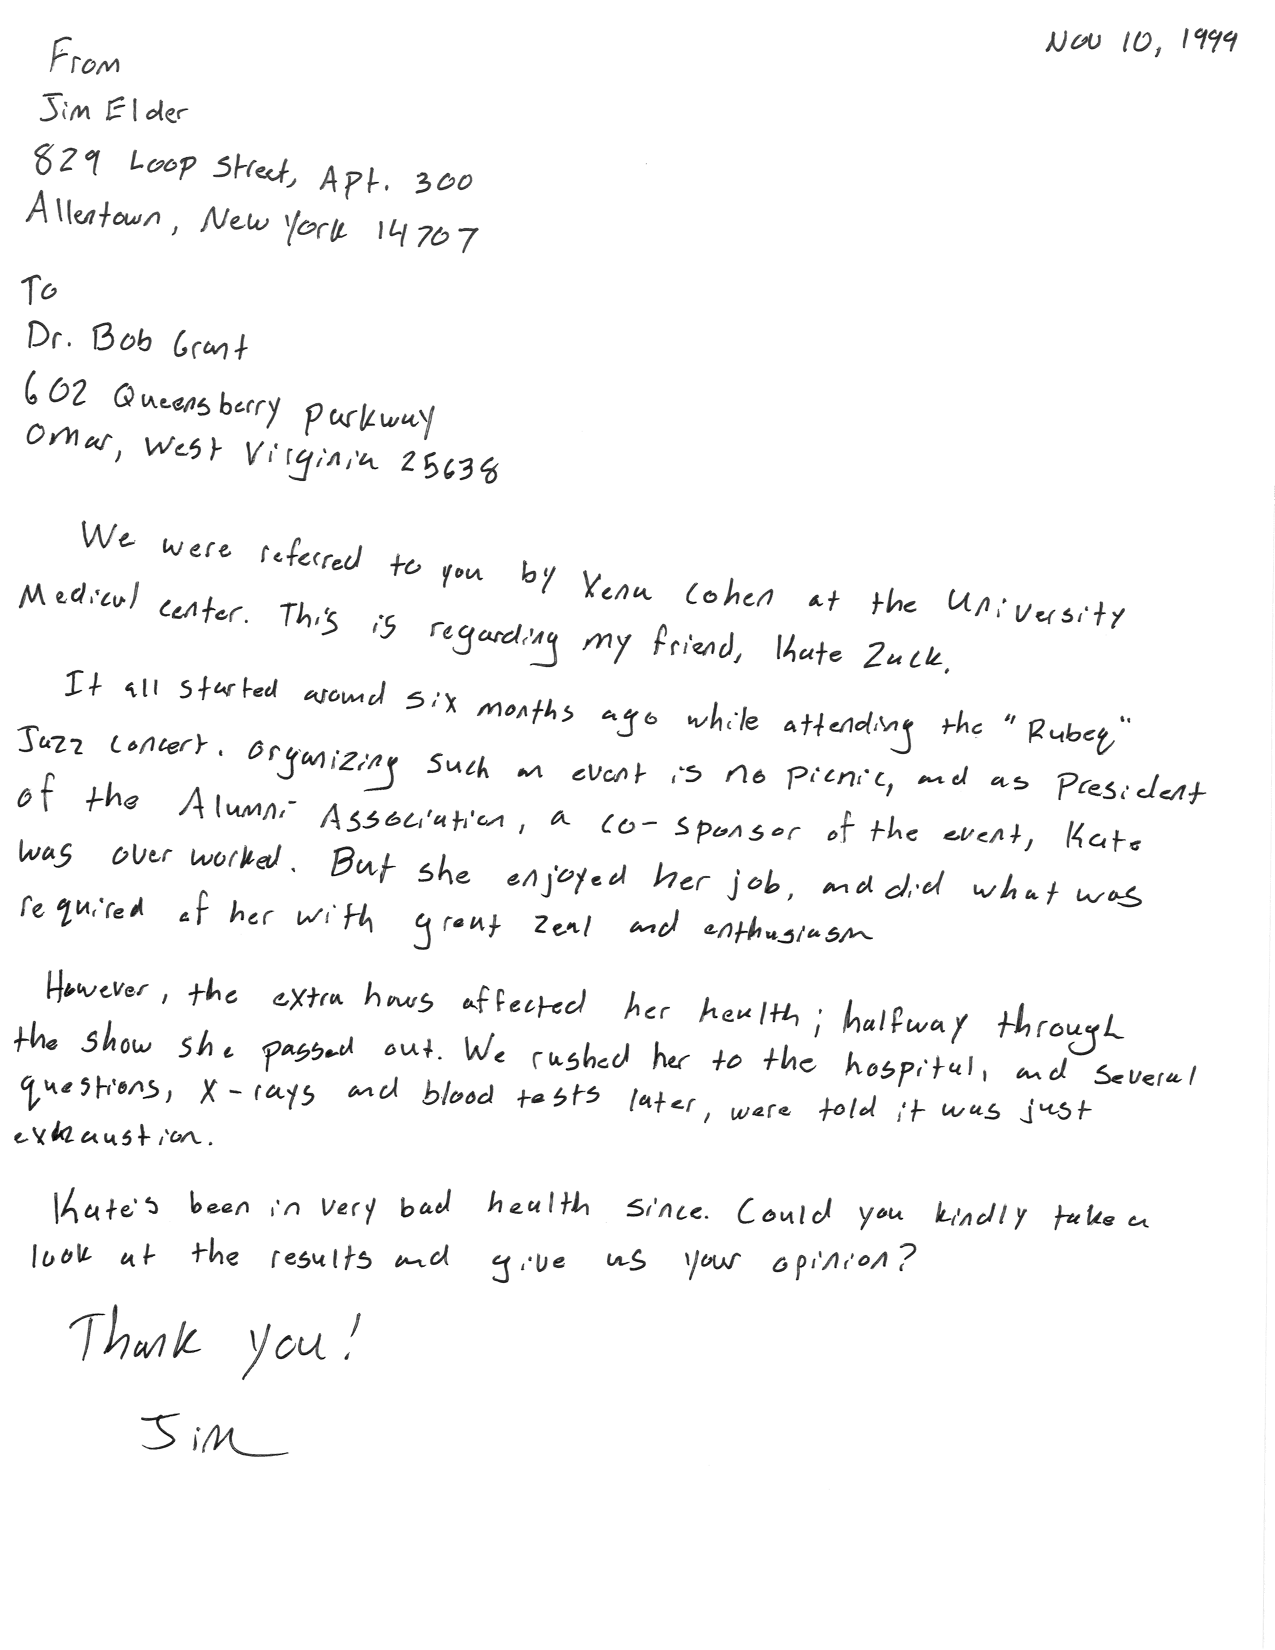 Nov 10, 1999
From
Jim Elder
829 Loop Street, Apt. 300
Allentown, New York 14707
To
Dr. Bob Grant
602 Queensberry Parkway
Omar, West Virginia 25638
We were referred to you by Xena Cohen at the University
Medical center. This is regarding my friend, Kate Zuck.
It all started around six months ago while attending the "Rubeq"
Jazz concert. Organizing such an event is no picnic, and as President
of the Alumni Association, a co-sponsor of the event, Kate
was over worked. But she enjoyed her job, and did what was
required of her with great zeal and enthusiasm
However, the extra hours affected her health; halfway through
the show she passed out. We rushed her to the hospital, and several
questions, x-rays and blood tests later, were told it was just
exhaustion.
Kate's been in very bad health since. Could you kindly take a
look at the results and give us your opinion?
Thank you!
Jim